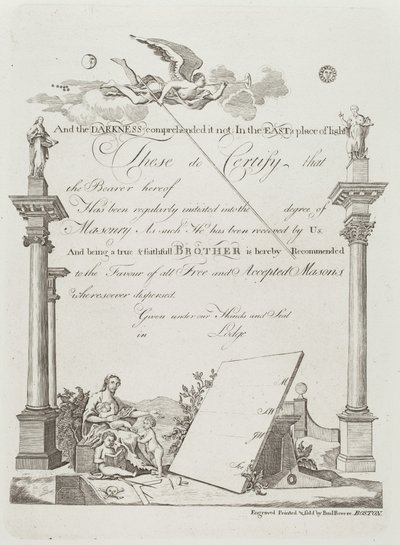 And the DARKNESS comprehended it not. In the EAST a place of light
These do Certify that
the Bearer hereof
Has been regularly initiated into the degree of
Masonry As such He has been received by Us.
And being a true & faithfull BROTHER is hereby Recommended
to the Favour of all Free and Accepted Masons
wheresoever dispersed.
Given under our Hands and Seal
in Lodge
M
SW
JW
Engraved Printed & Sold by Paul Revere BOSTON.